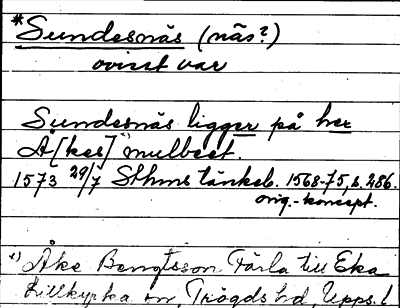 *Sundesnäs (näs?)
ovisst var
Sundesnäs ligger på her
Å[kes]¹⁾ mulbeet.
1573 29/7 Sthms tänkeb. 1568-75, s. 286.
orig.-koncept.
¹⁾ Åke Bengtsson Färla till Eka
Lillkyrka sn, Trögds hd, Upps. l